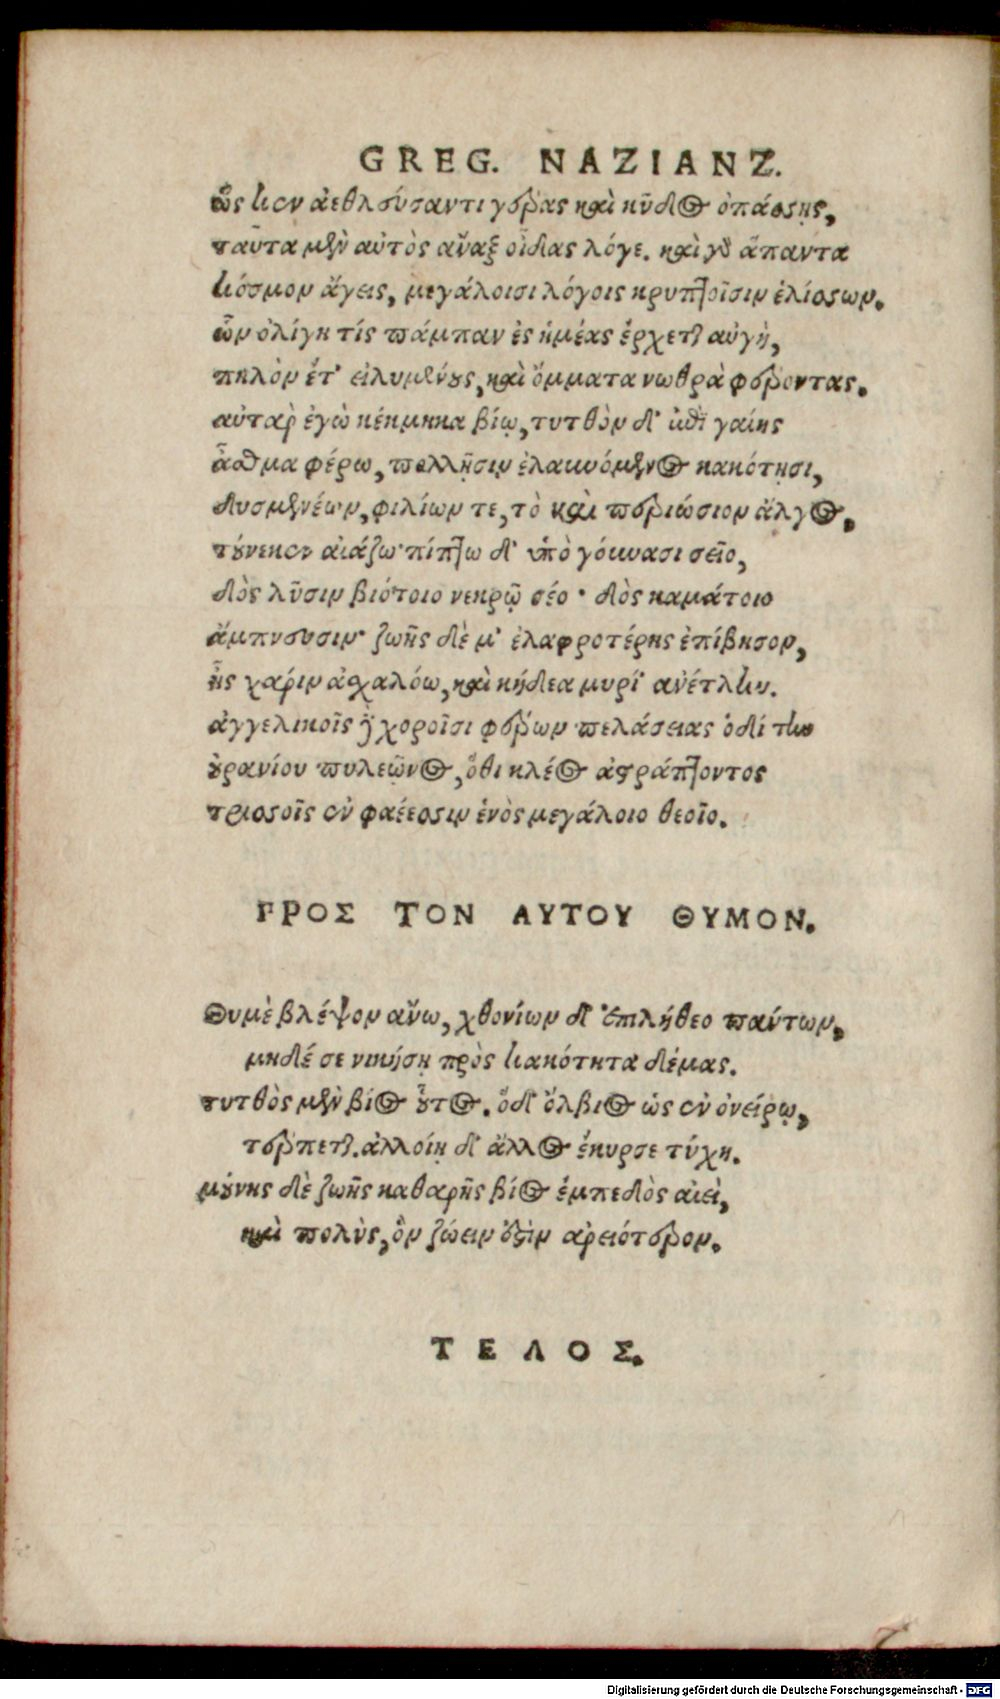 GREG. NAZIANZ.
ὥς κεν ἀεθλεύσαντι γέρας καὶ κῦδος ὀπάσσῃς,
ταῦτα μὲν αὐτὸς ἄναξ οἶδας λόγε. καὶ γὰρ ἅπαντα
κόσμον ἄγεις, μεγάλοισι λόγοις κρυπτοῖσιν ἑλίσσων.
ὧν ὀλίγη τίς πάμπαν ἐς ἡμέας ἔρχεται αὐγὴ,
πηλὸν ἔτ' εἰλυμένους, καὶ ὄμματα νωθρὰ φέροντας.
αὐτὰρ ἐγὼ κέκμηκα βίῳ, τυτθὸν δ' ἐπὶ γαίης
ἆσθμα φέρω, πολλῇσιν ἐλαυνόμενος κακότησι,
δυσμενέων, φιλίων τε, τὸ καὶ περιώσιον ἄλγος.
τούνεκεν αἰάζω· πίπτω δ' ὑπὸ γούνασι σεῖο,
δὸς λῦσιν βιότοιο νεκρῷ σέο· δὸς καμάτοιο
ἄμπνευσιν· ζωῆς δὲ μ' ἐλαφροτέρης ἐπίβησον,
ἧς χάριν ἀσχαλόω, καὶ κήδεα μυρί' ἀνέτλην.
ἀγγελικοῖς ἢ χοροῖσι φέρων πελάσειας ὁδί την
οὐρανίου πυλεῶνος, ὅθι κλέος ἀστράπτοντος
τρισσοῖς ἐν φαέεσσιν ἑνὸς μεγάλοιο θεοῖο.
ΠΡΟΣ ΤΟΝ ΑΥΤΟΥ ΘΥΜΟΝ.
Θυμὲ βλέψον ἄνω, χθονίων δ' ἐπιλήθεο πάντων,
μηδέ σε νικήσῃ πρὸς κακότητα δέμας.
τυτθὸς μὲν βίος οὗτος. ὅδ' ὄλβιος ὡς ἐν ὀνείρῳ,
τέρπεται. ἀλλοίῃ δ' ἄλλος ἔκυρσε τύχῃ.
μούνης δὲ ζωῆς καθαρῆς βίος ἔμπεδὸς αἰεὶ,
καὶ πολὺς, ὃν ζώειν ἐστὶν ἀρειότερον.
ΤΕΛΟΣ.
Digitalisierung gefördert durch die Deutsche Forschungsgemeinschaft - DFG